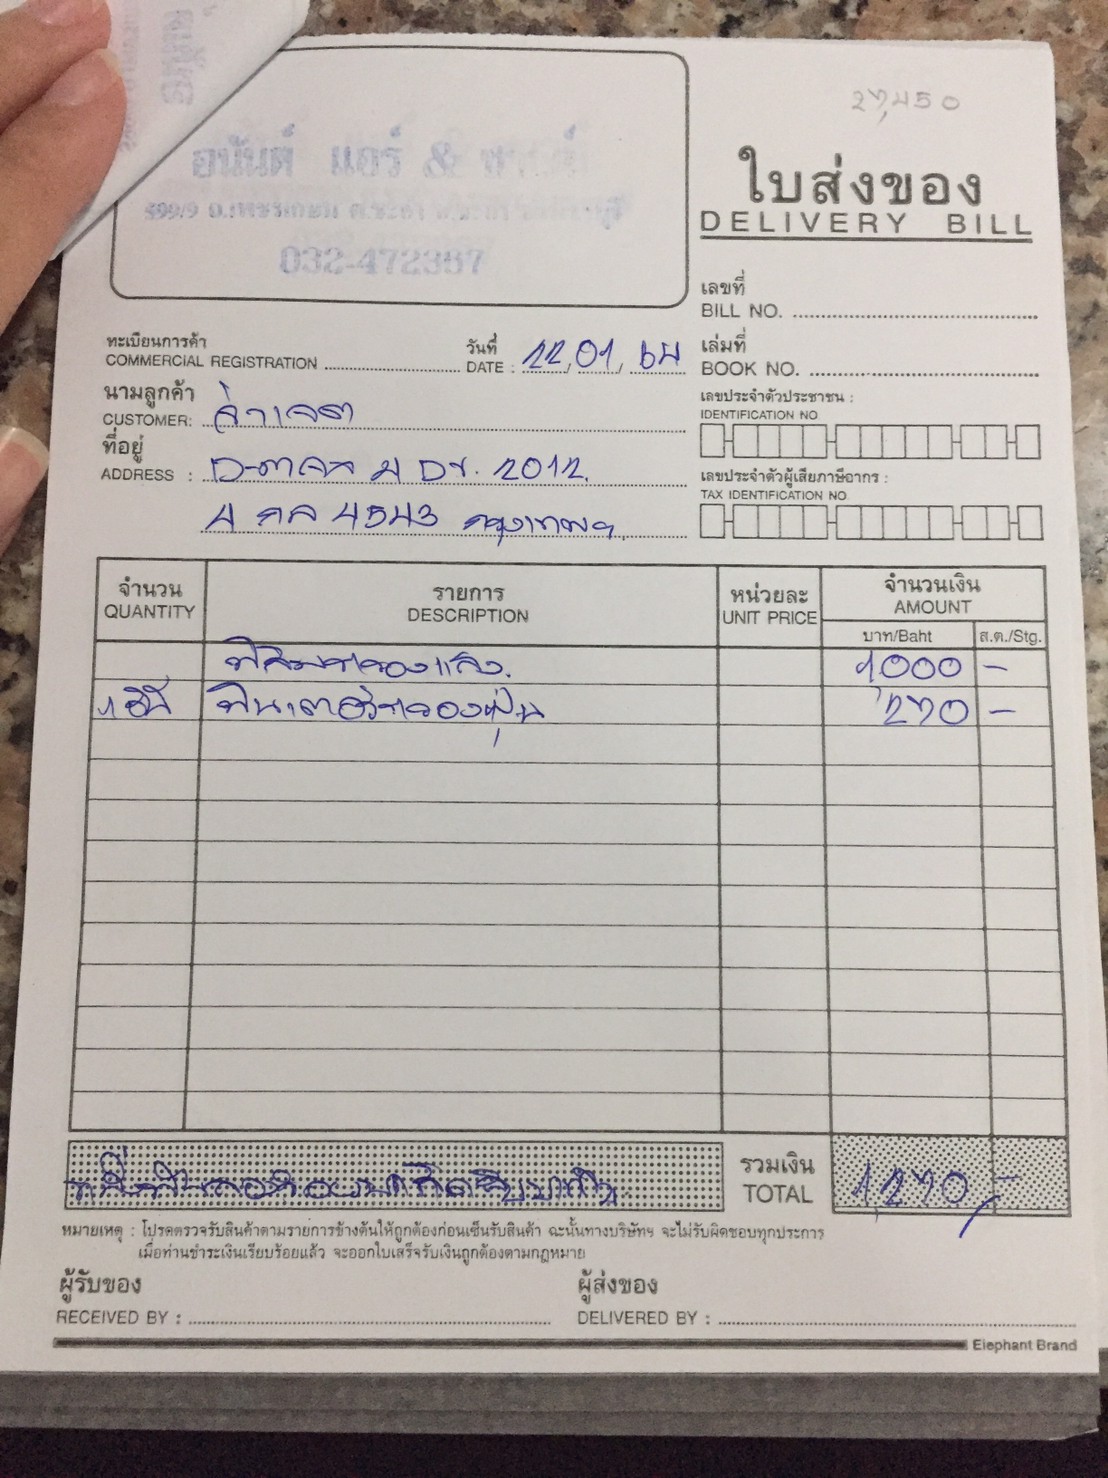 27,450
อนันต์ แอร์ &
599/9 ถ.เพชรเกษม ต.ชะอำ
032-472387
ใบส่งของ
DELIVERY BILL
เลขที่
BILL NO.
ทะเบียนการค้า
COMMERCIAL REGISTRATION
วันที่
DATE : 22/01/64
เล่มที่
BOOK NO.
นามลูกค้า
CUSTOMER:
เลขประจำตัวประชาชน :
IDENTIFICATION NO.
ที่อยู่
ADDRESS : 2012
เลขประจำตัวผู้เสียภาษีอากร :
TAX IDENTIFICATION NO.
4 กล 4543 กรุงเทพฯ
จำนวน
QUANTITY
รายการ
DESCRIPTION
หน่วยละ
UNIT PRICE
จำนวนเงิน
AMOUNT
บาท/Baht ส.ต./Stg.
ฟิล์มกรองแสง 1000 -
1 อัน ฟินเตอร์กรองฝุ่น 270 -
รวมเงิน
TOTAL 1,270 -
หมายเหตุ : โปรดตรวจรับสินค้าตามรายการข้างต้นให้ถูกต้องก่อนเซ็นรับสินค้า ฉะนั้นทางบริษัทฯ จะไม่รับผิดชอบทุกประการ
เมื่อท่านชำระเงินเรียบร้อยแล้ว จะออกใบเสร็จรับเงินถูกต้องตามกฎหมาย
ผู้รับของ
RECEIVED BY :
ผู้ส่งของ
DELIVERED BY :
Elephant Brand